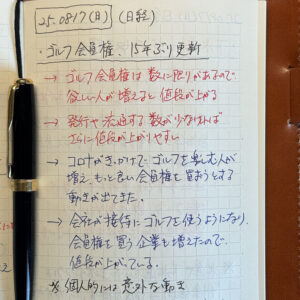 25.0817(日) (日経)
・ゴルフ会員権、15年ぶり更新
→ ゴルフ会員権は数に限りがあるので
欲しい人が増えると値段が上がる
→ 発行や流通する数が少なければ
さらに値段が上がりやすい
→ コロナがきっかけで ゴルフを楽しむ人が
増え、もっと良い会員権を買おうとする
動きが出てきた。
→ 会社が接待にゴルフを使うようになり、
会員権を買う企業も増えたので
値段が上がっている。
※ 個人的には意外な動き